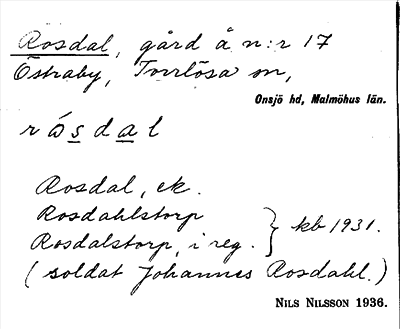 Rosdal, gård å n:r 17
Östraby, Torrlösa sn,
Onsjö hd, Malmöhus län.
rósdal
Rosdal, ek.
Rosdahlstorp
Rosdalstorp, i reg. } kb 1931.
(soldat Johannes Rosdahl.)
NILS NILSSON 1936.